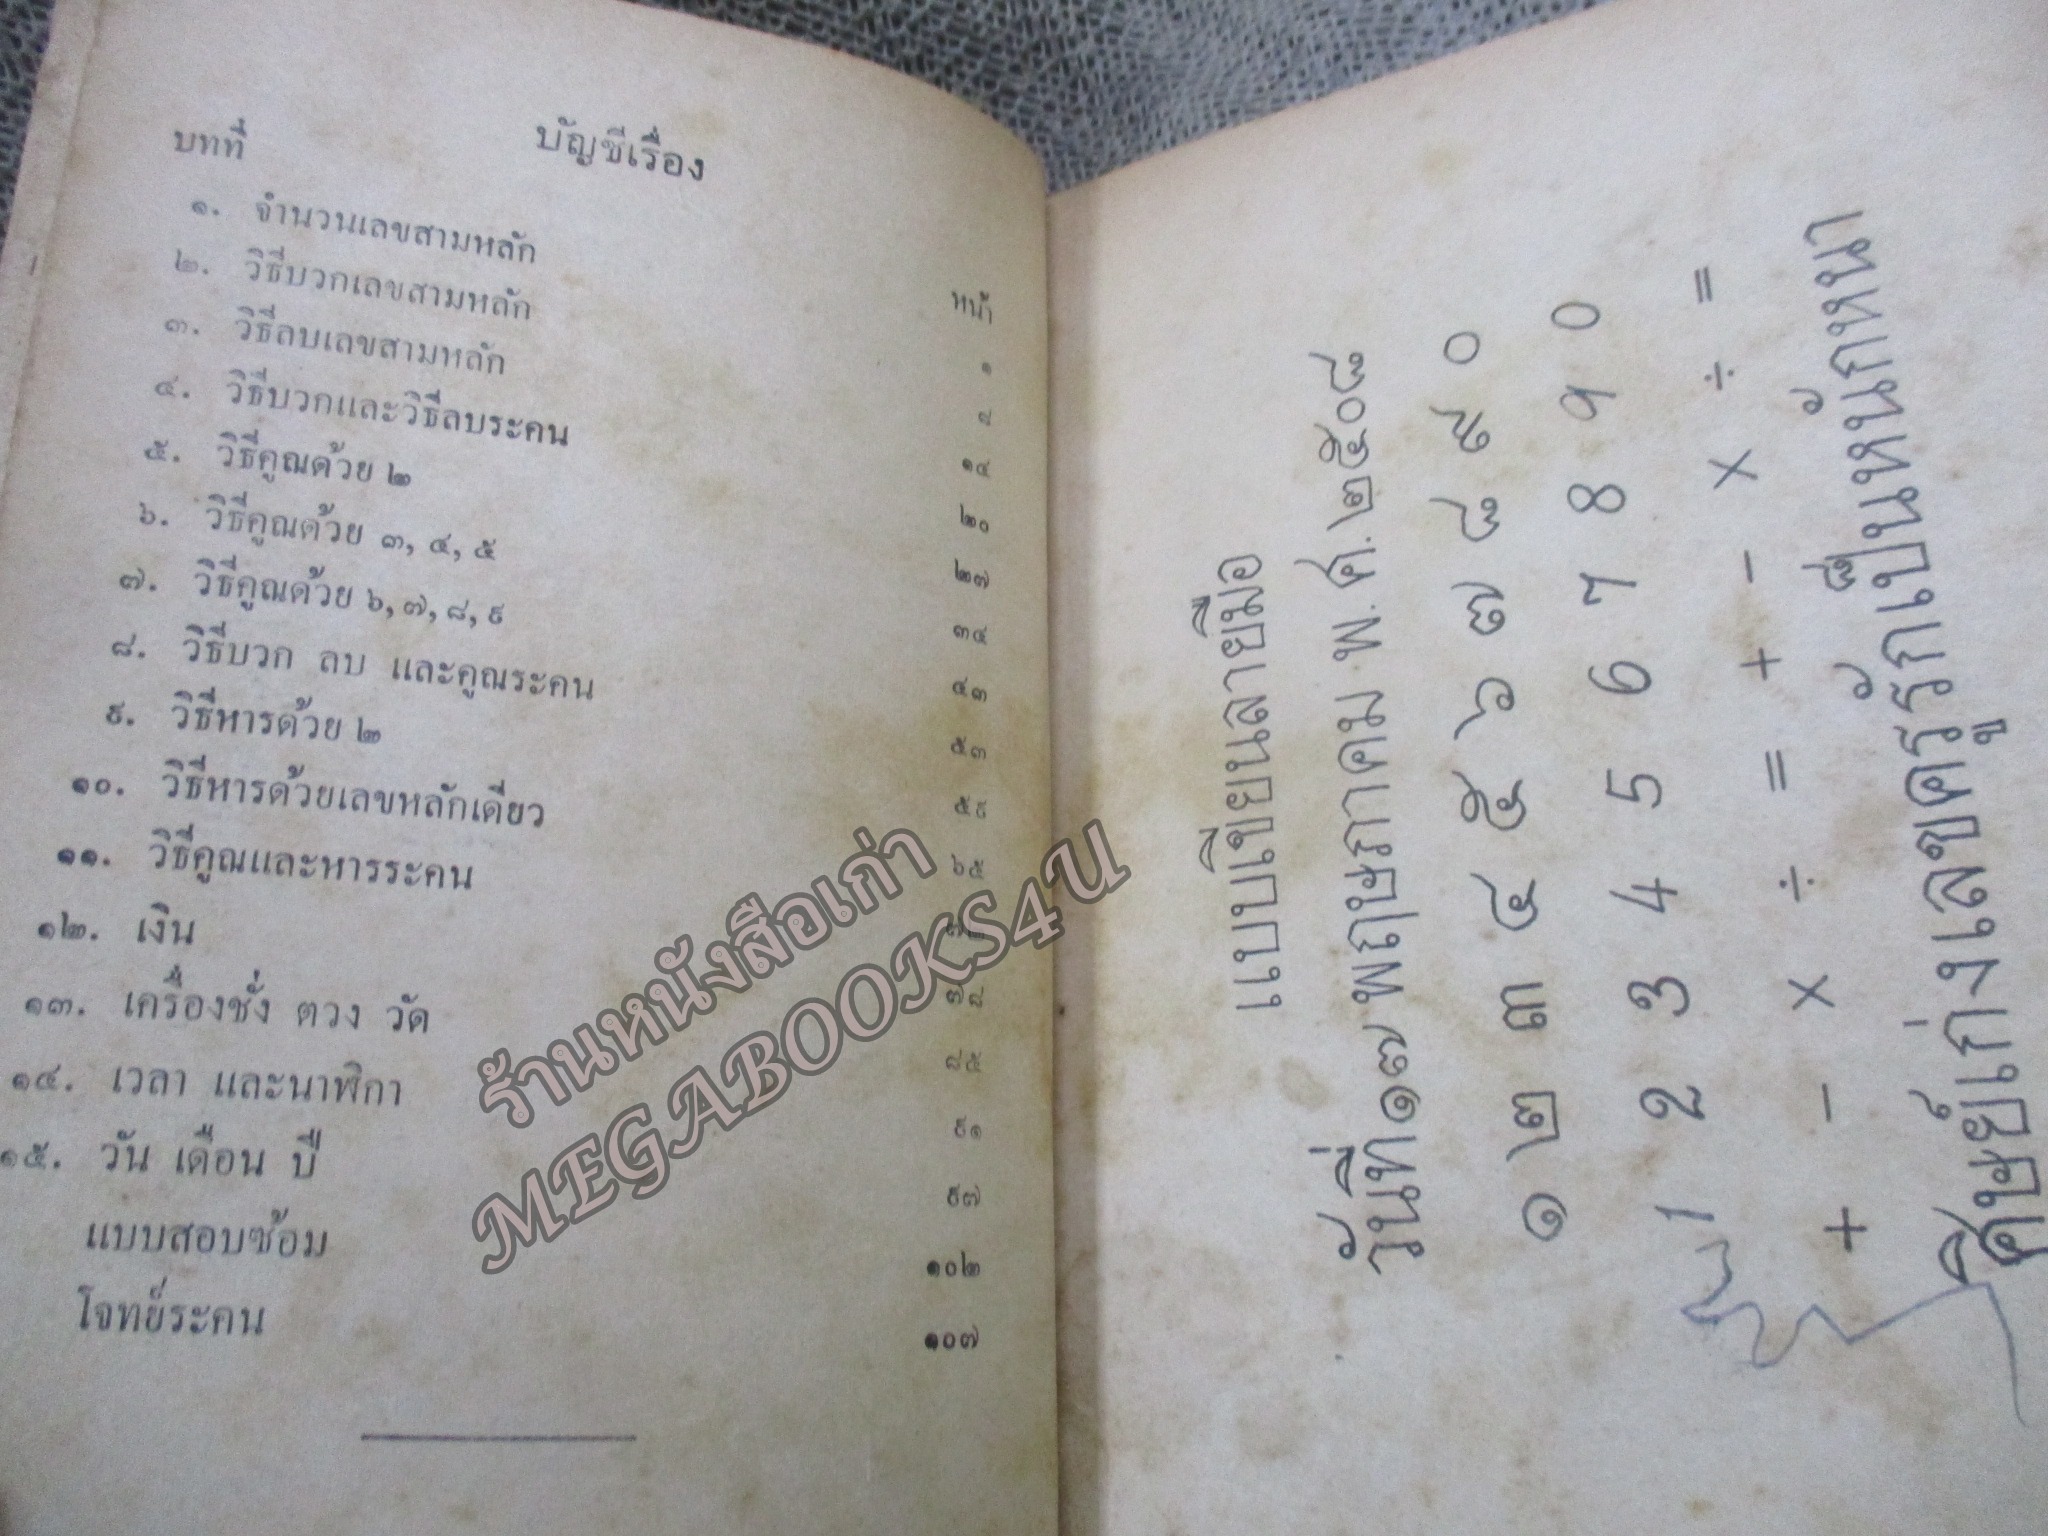 บัญชีเรื่อง
บทที่
หน้า
๑. จำนวนเลขสามหลัก ๑
๒. วิธีบวกเลขสามหลัก ๘
๓. วิธีลบเลขสามหลัก ๑๔
๔. วิธีบวกและวิธีลบระคน ๒๐
๕. วิธีคูณด้วย ๒ ๒๗
๖. วิธีคูณด้วย ๓, ๔, ๕ ๓๔
๗. วิธีคูณด้วย ๖, ๗, ๘, ๙ ๔๓
๘. วิธีบวก ลบ และคูณระคน ๕๓
๙. วิธีหารด้วย ๒ ๕๙
๑๐. วิธีหารด้วยเลขหลักเดียว ๖๕
๑๑. วิธีคูณและหารระคน ๗๒
๑๒. เงิน ๗๘
๑๓. เครื่องชั่ง ตวง วัด ๘๕
๑๔. เวลา และนาฬิกา ๙๑
๑๕. วัน เดือน ปี ๙๗
แบบสอบซ้อม ๑๐๒
โจทย์ระคน ๑๐๗
ร้านหนังสือเก่า
MEGABOOKS4U
แบบเขียนลายมือ
วันที่๑๗ พฤษภาคม พ.ศ.๒๕๐๘
๑ ๒ ๓ ๔ ๕ ๖ ๗ ๘ ๙ ๐
1 2 3 4 5 6 7 8 9 0
+ - × ÷ = + - × ÷ =
ศิษย์เก่งเลขครูรักเป็นหนักหนา